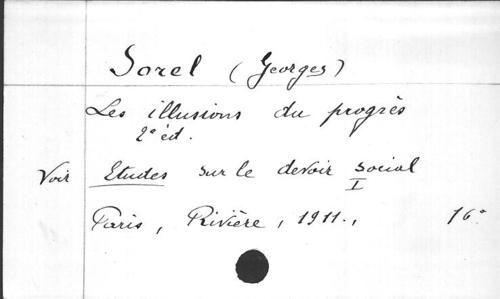 Sorel (Georges)
Les illusions du progrès
2e éd.
Voir Etudes sur le devoir social
I
Paris, Rivière, 1911., 16°